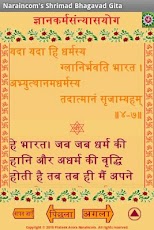 Naraincom's Shrimad Bhagavad Gita
ज्ञानकर्मसंन्यासयोग
यदा यदा हि धर्मस्य
ग्लानिर्भवति भारत ।
अभ्युत्थानमधर्मस्य
तदात्मानं सृजाम्यहम्
॥४-७॥
हे भारत। जब जब धर्म की
हानि और अधर्म की वृद्धि
होती है तब तब ही मैं अपने
पिछला अगला